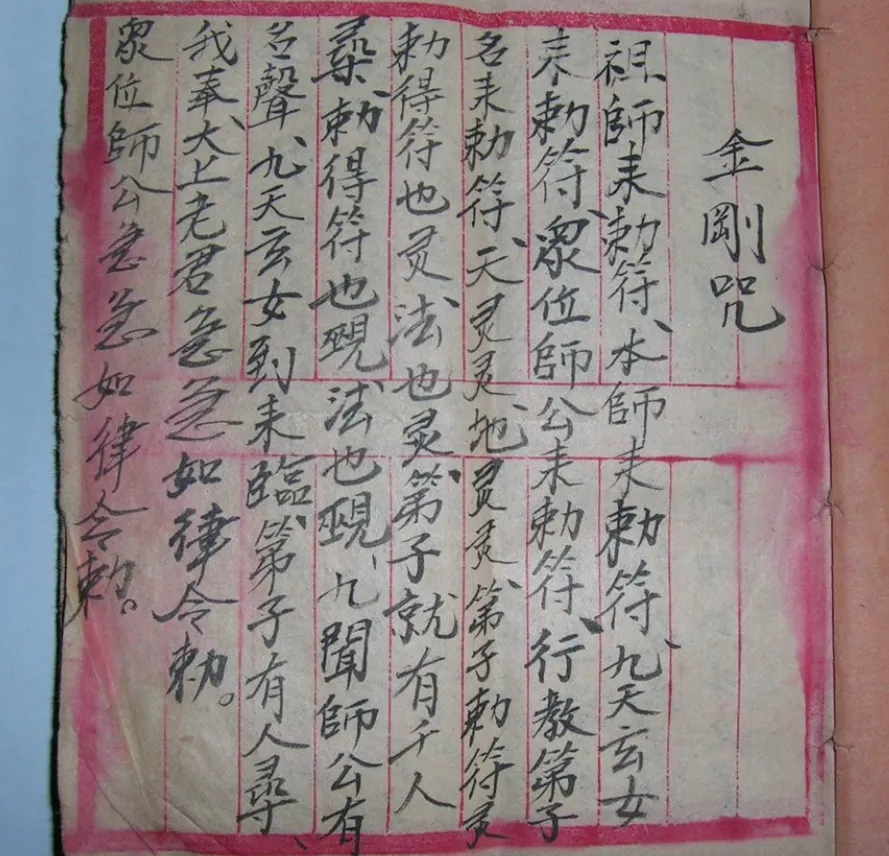 金剛咒
祖師来勅符、本師来勅符、九天玄女
来勅符、衆位師公来勅符、行教第子
名来勅符、天灵灵地、灵灵、第子勅符灵
勅得符也灵法也灵、第子就有千人
尋、勅得符也現法也現、九聞師公有
名聲、九天玄女到来臨、第子有人尋、
我奉太上老君急急如律令勅。
衆位師公急急如律令勅。